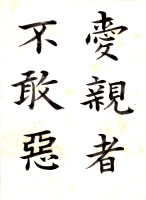 愛親者
不敢惡